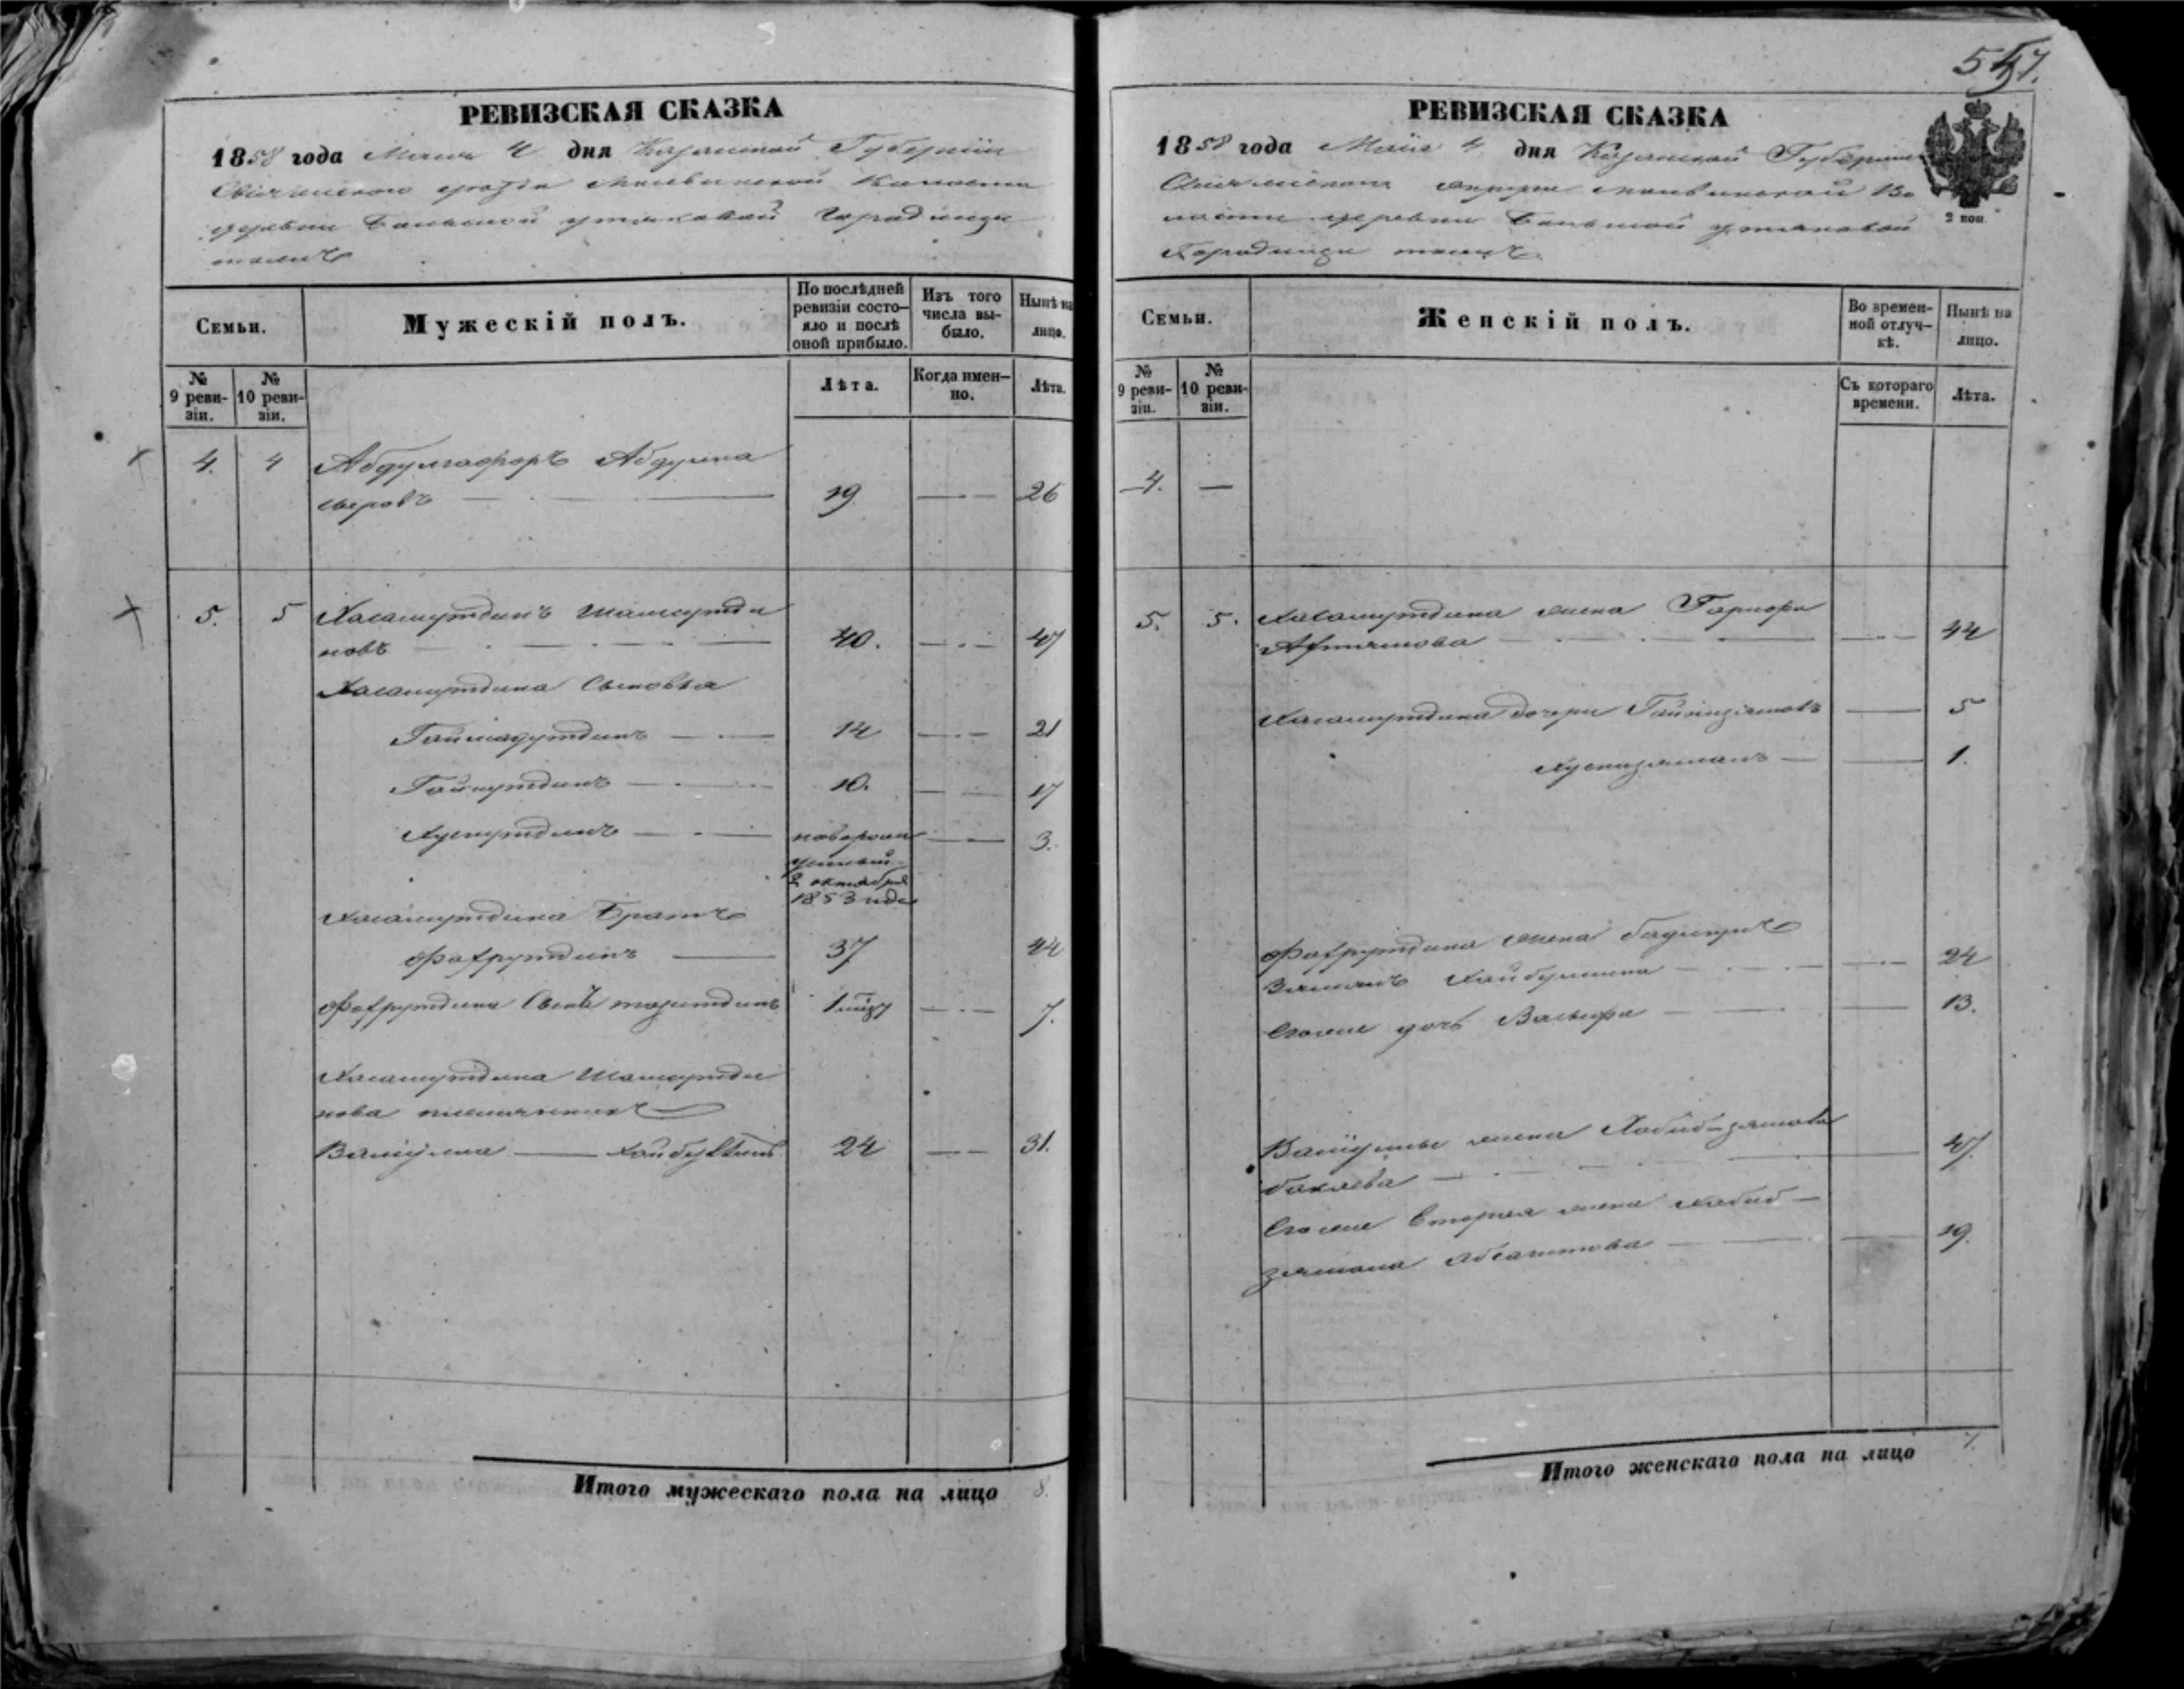 РЕВИЗСКАЯ СКАЗКА
1858 года Мая 4 дня Казанской Губернии
Свіяжскаго уезда Волости
деревни Большой Утяковой Городище
тожъ
Семьи.
Мужескій полъ.
По послѣдней ревизіи состо-
яло и послѣ
оной прибыло.
Изъ того
числа вы-
было.
Нынѣ на
лицо.
№
9 реви-
зіи.
№
10 реви-
зіи.
Лѣта.
Когда имен-
но.
Лѣта.
4. 4 Абдулгафоръ Абдулна
сыровъ 19 26
5. 5 Хасамутдинъ Шамсутди
новъ 40. 47
Хасамутдина Сыновья
14 21
Гайнутдинъ 10. 17
Хуснутдинъ новорож 3.
денный
2 октября
1853 года
Хасамутдина Братъ
Фахрутдинъ 37 44
Фахрутдина Сынъ 1 7.
Хасамутдина Шамсутди
нова племянникъ
Валиулла Хайбуллинъ 24 31.
Итого мужескаго пола на лицо 8.
547.
РЕВИЗСКАЯ СКАЗКА
1858 года Мая 4 дня Казанской Губернии
Свіяжскаго Во
лости деревни Большой Утяковой
Городище тожъ
2 коп
Семьи.
Женскій полъ.
Во времен-
ной отлуч-
кѣ.
Нынѣ на
лицо.
№
9 реви-
зіи.
№
10 реви-
зіи.
Съ котораго
времени.
Лѣта.
4. —
5. 5. Хасамутдина жена
44
Хасамутдина дочери 5
Хуснизямалъ 1.
Фахрутдина жена
Зямалъ Хайбуллина 24
Его же дочь 13.
Валиуллы жена Хабиб-
47.
Его же Вторая жена Хабиб-
зямала 19.
Итого женскаго пола на лицо 7.